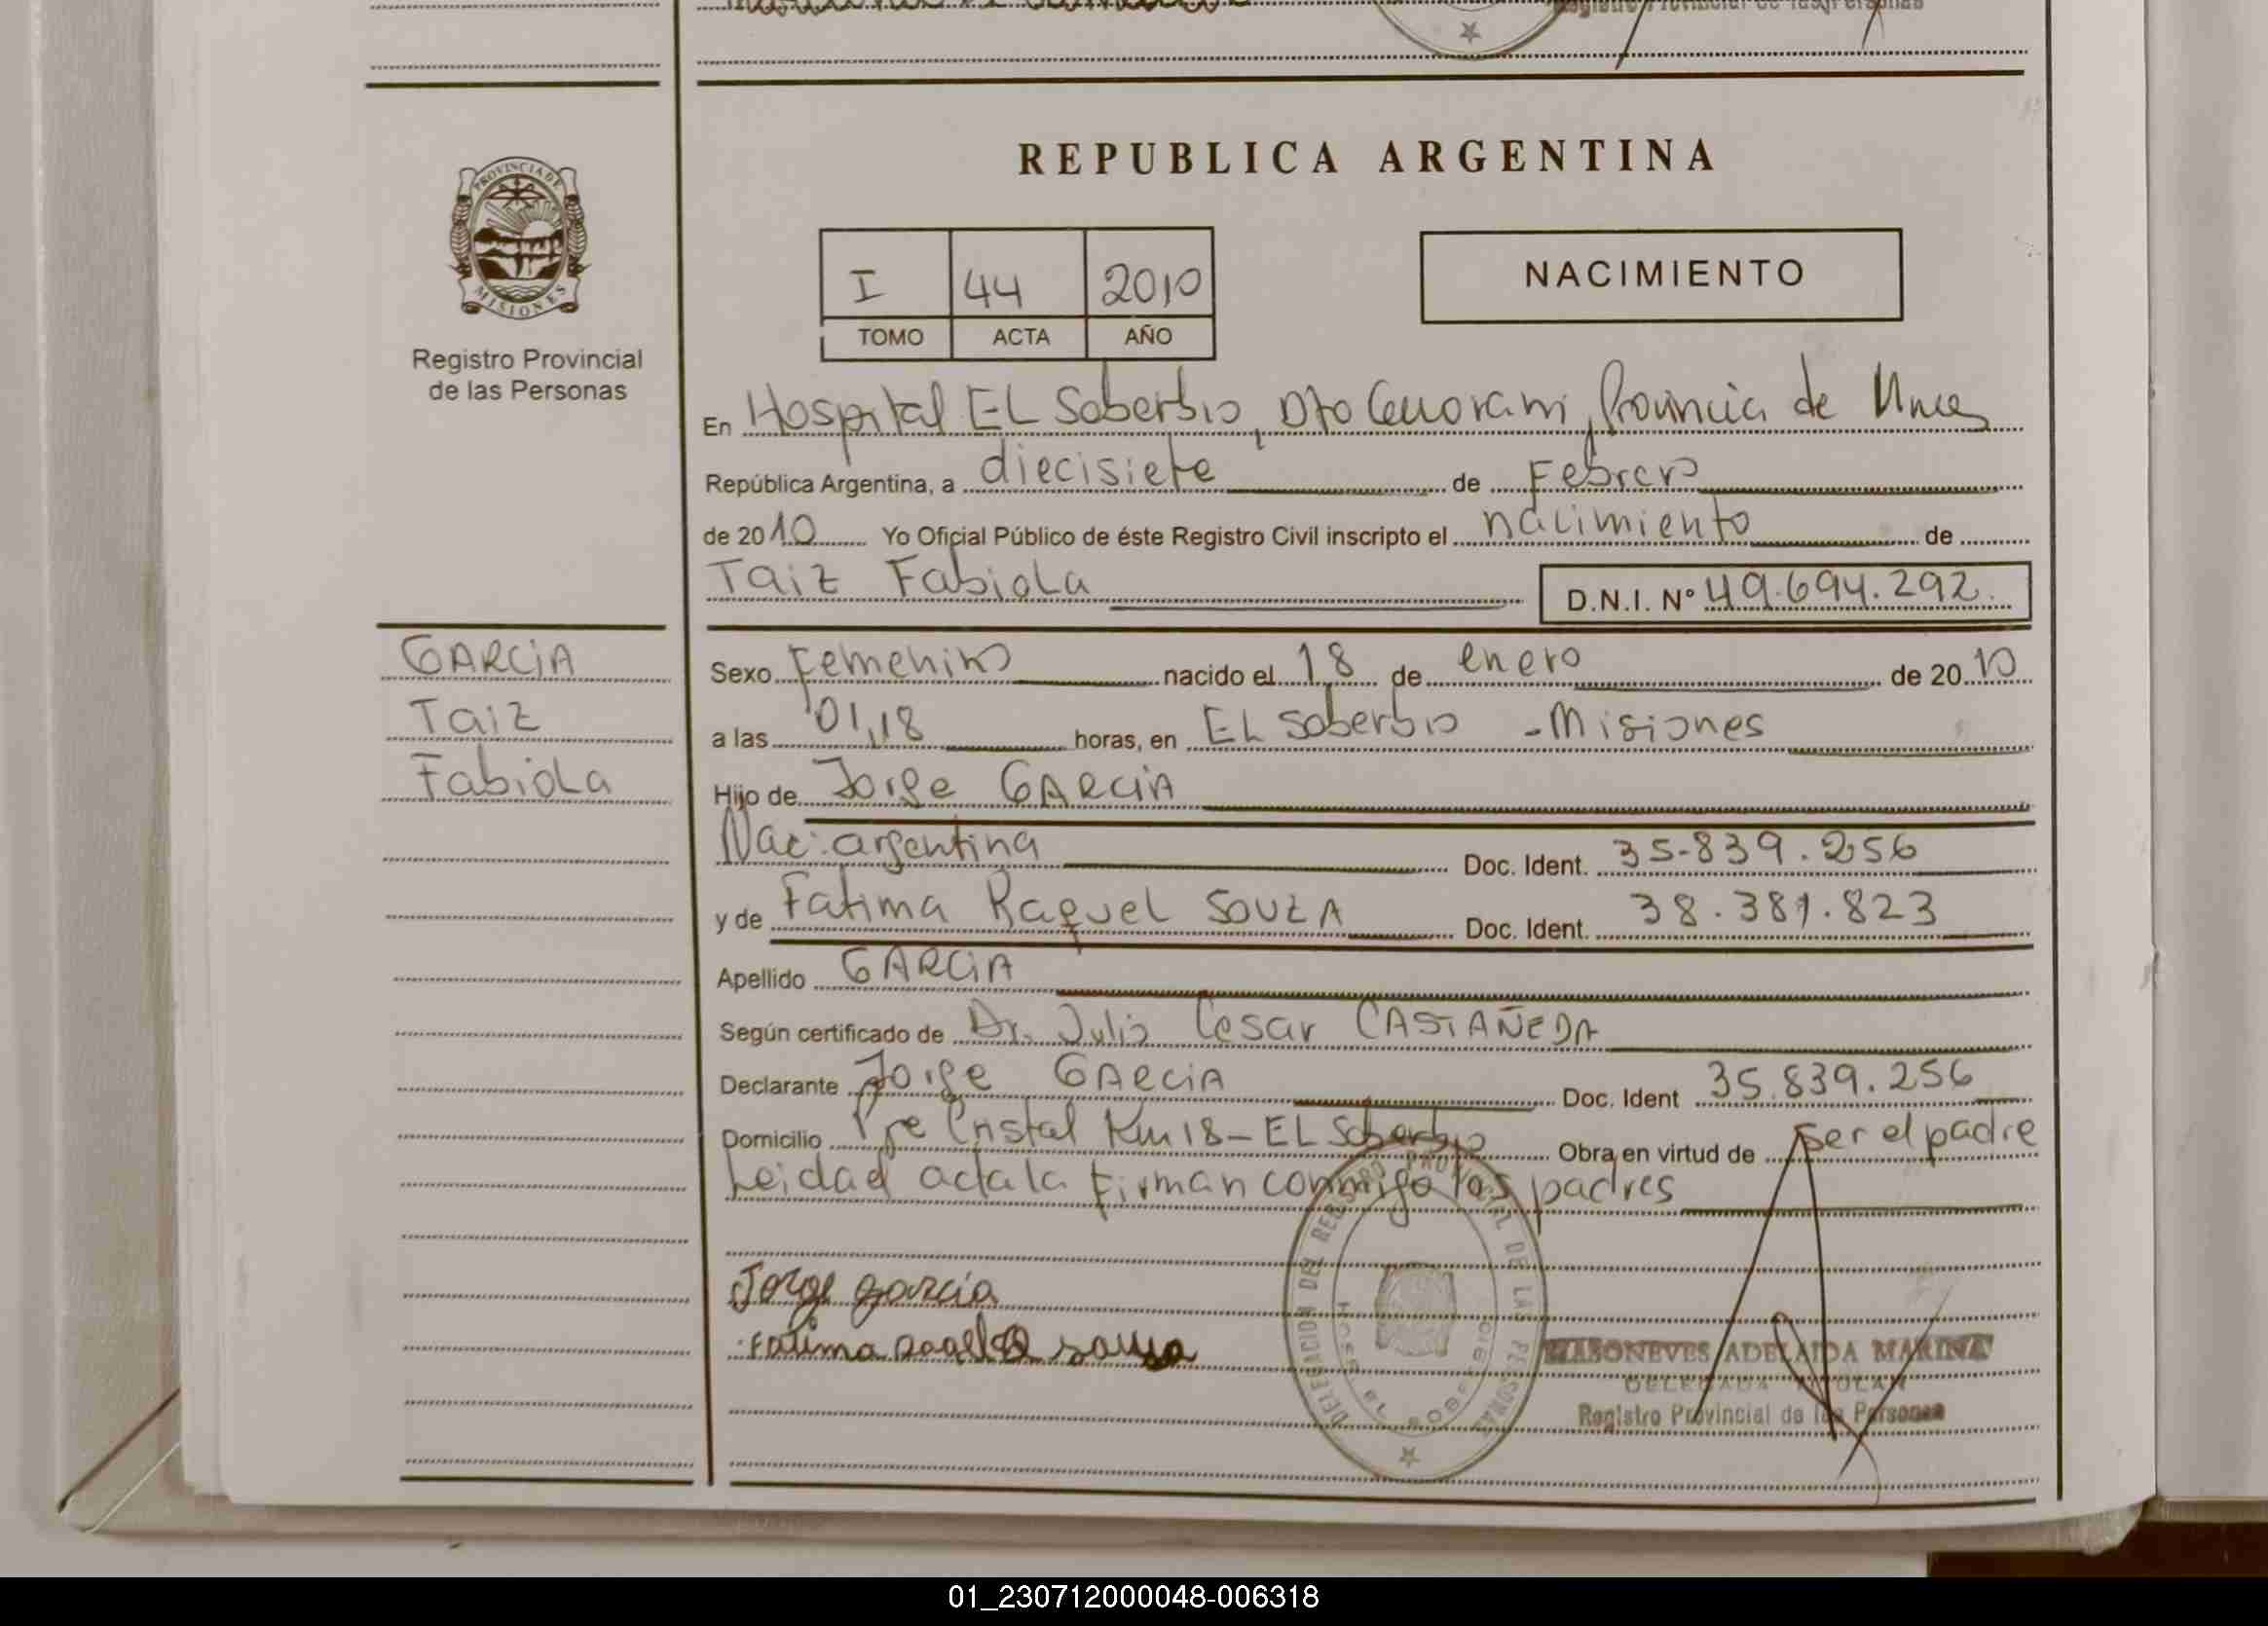 REPUBLICA ARGENTINA
PROVINCIA DE
MISIONES
Registro Provincial
de las Personas
I 44 2010
TOMO ACTA AÑO
NACIMIENTO
En Hospital EL Soberbio, Dto Guarani, Provincia de Mnes
República Argentina, a diecisiete de Febrero
de 2010 Yo Oficial Público de éste Registro Civil inscripto el nacimiento de
Taiz Fabiola D.N.I. Nº 49.694.292.
GARCIA
Taiz
Fabiola
Sexo Femenino nacido el 18 de enero de 2010
a las 01,18 horas, en EL Soberbio - Misiones
Hijo de Jorge GARCIA
Nac: argentina Doc. Ident. 35.839.256
y de Fatima Raquel SOUZA Doc. Ident. 38.381.823
Apellido GARCIA
Según certificado de Dr. Julio Cesar CASTAÑEDA
Declarante Jorge GARCIA Doc. Ident 35.839.256
Domicilio Pje Cristal Km 18 - EL Soberbio Obra en virtud de ser el padre
Leidad acta la firman conmigo los padres
Jorge garcia
Fatima souza
DELEGACION DEL REGISTRO PROVINCIAL DE LAS PERSONAS
ADELAIDA MARINA
DELEGADA TITULAR
Registro Provincial de las Personas
01_230712000048-006318